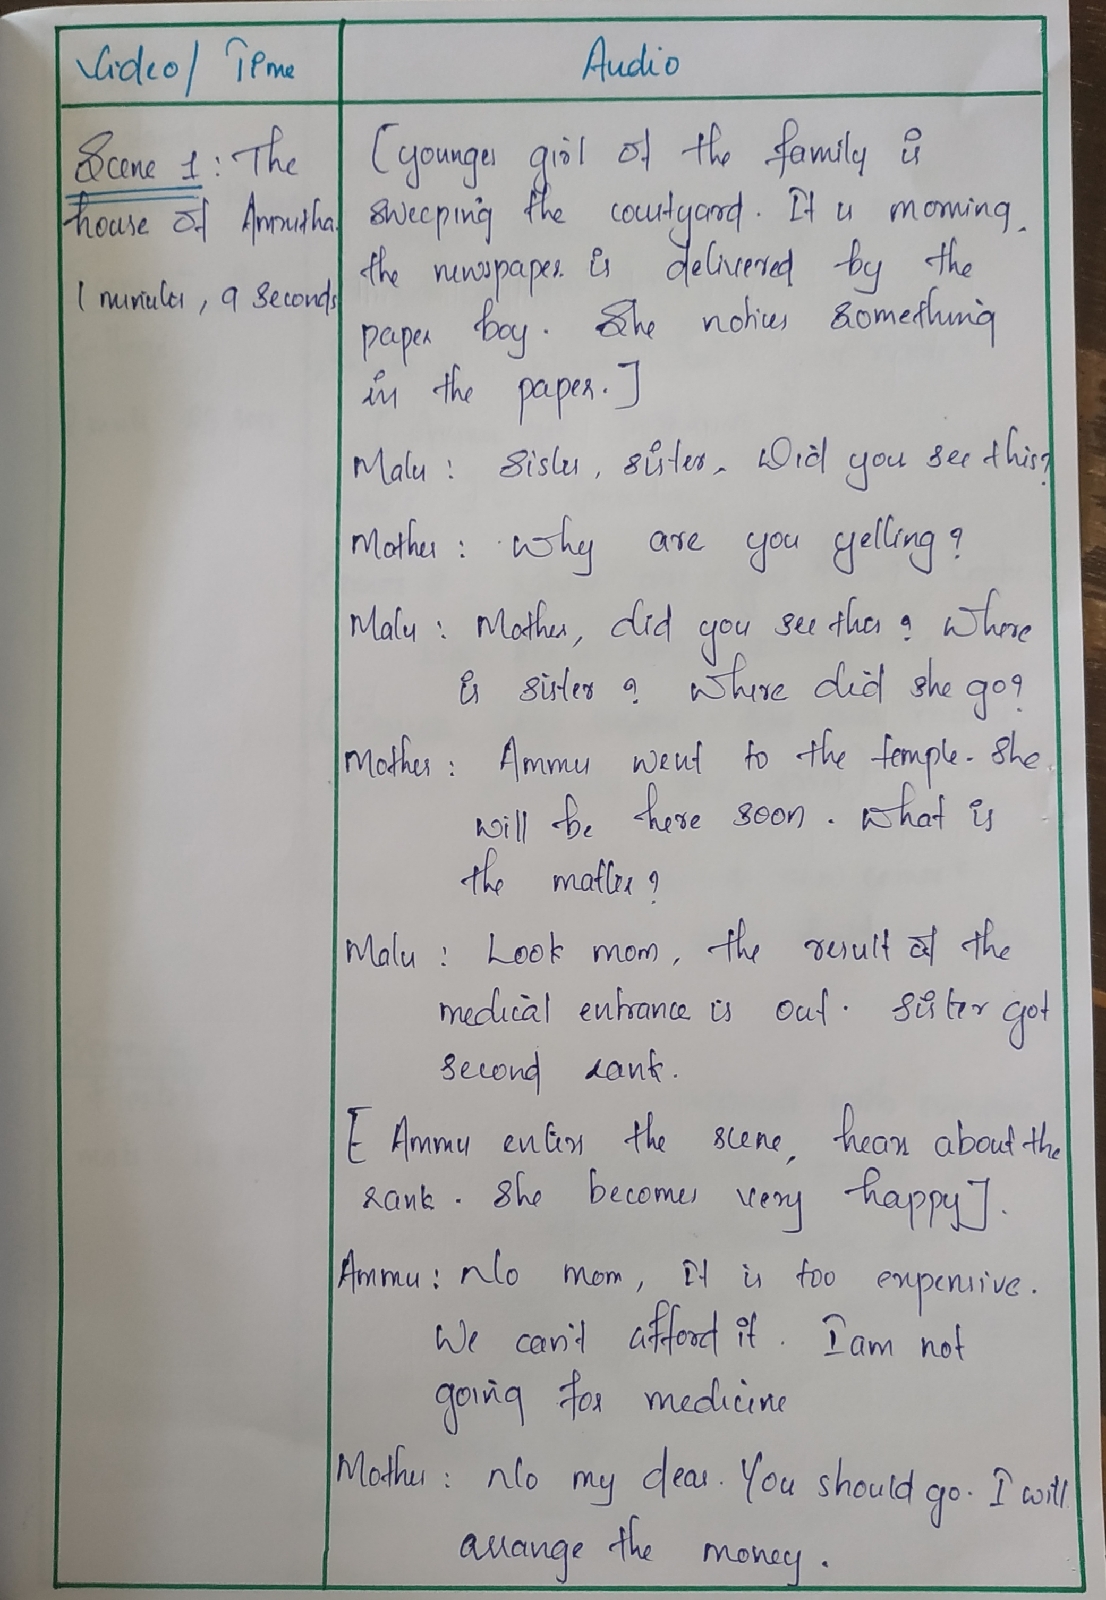 Video/ Time
Audio
Scene 1: The
house of Amrutha.
1 minutes, 9 seconds
[younger girl of the family is
sweeping the courtyard. It is morning.
the newspaper is delivered by the
paper boy. She notices something
in the paper.]
Malu: Sister, sister. Did you see this?
Mother: Why are you yelling?
Malu: Mother, did you see this? Where
is sister? Where did she go?
Mother: Ammu went to the temple. She
will be here soon. What is
the matter?
Malu: Look mom, the result of the
medical entrance is out. Sister got
second rank.
[Ammu enters the scene, hears about the
rank. She becomes very happy].
Ammu: No mom, It is too expensive.
We can't afford it. I am not
going for medicine
Mother: No my dear. You should go. I will
arrange the money.